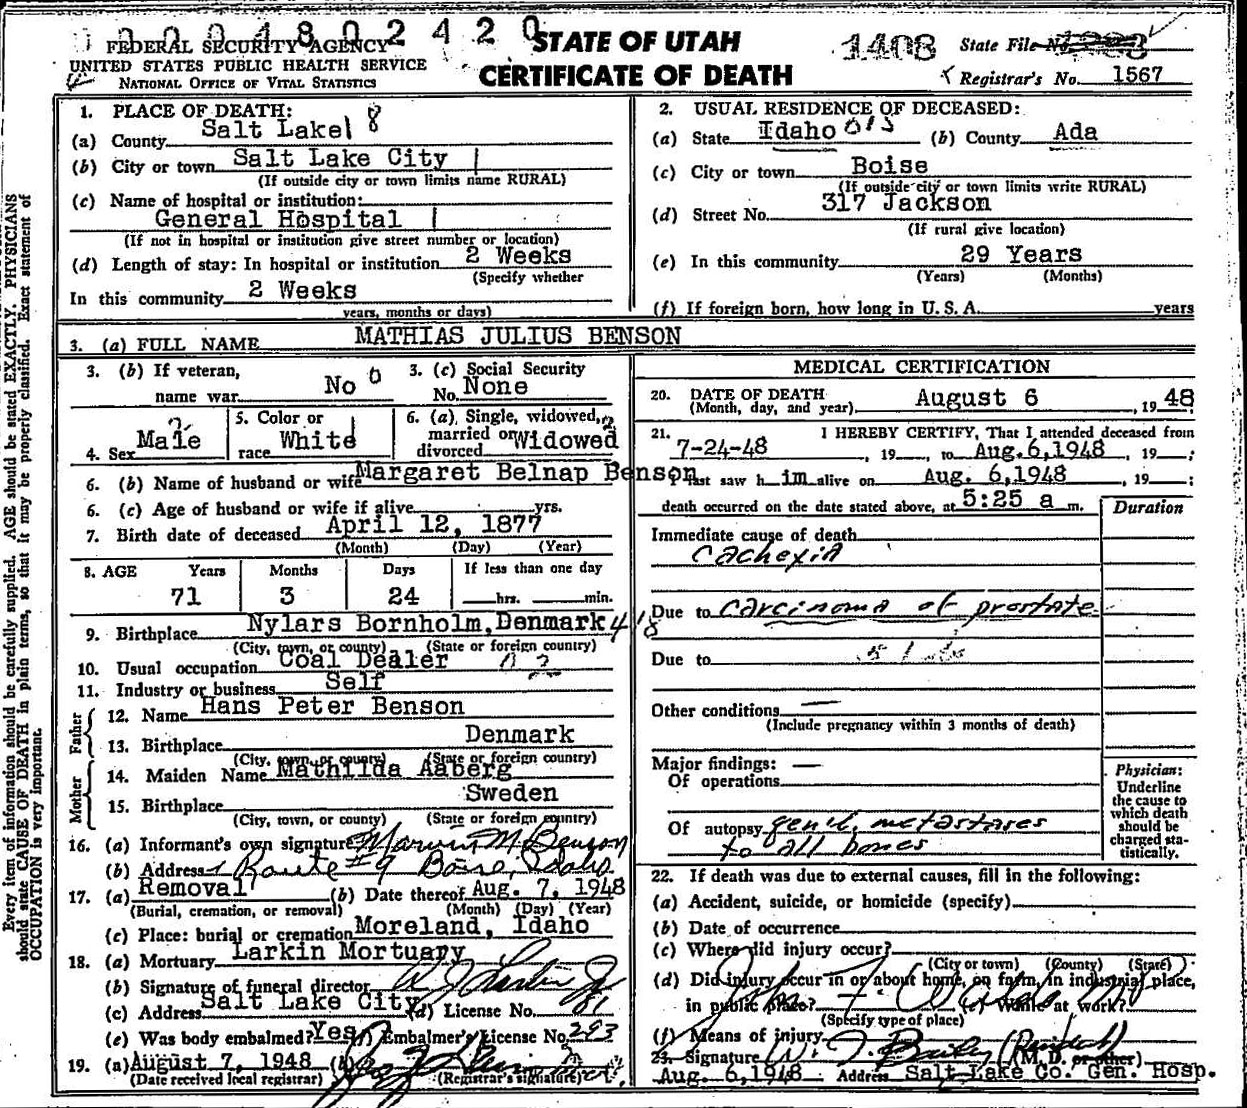 0 0 0 4 8 0 2 4 2 0
FEDERAL SECURITY AGENCY
UNITED STATES PUBLIC HEALTH SERVICE
NATIONAL OFFICE OF VITAL STATISTICS
STATE OF UTAH
CERTIFICATE OF DEATH
1408 State File No.
Registrar's No. 1567
Every item of information should be carefully supplied. AGE should be stated EXACTLY. PHYSICIANS
should state CAUSE OF DEATH in plain terms, so that it may be properly classified. Exact statement of
OCCUPATION is very important.
1. PLACE OF DEATH: 8
(a) County Salt Lake
(b) City or town Salt Lake City
(If outside city or town limits name RURAL)
(c) Name of hospital or institution:
General Hospital
(If not in hospital or institution give street number or location)
(d) Length of stay: In hospital or institution 2 Weeks
(Specify whether
In this community 2 Weeks
years, months or days)
2. USUAL RESIDENCE OF DECEASED:
(a) State Idaho (b) County Ada
(c) City or town Boise
(If outside city or town limits write RURAL)
(d) Street No. 317 Jackson
(If rural give location)
(e) In this community 29 Years
(Years) (Months)
(f) If foreign born, how long in U. S. A. years
3. (a) FULL NAME MATHIAS JULIUS BENSON
3. (b) If veteran, name war No 0
3. (c) Social Security No. None
4. Sex Male
5. Color or race White
6. (a) Single, widowed, married or divorced Widowed
6. (b) Name of husband or wife Margaret Belnap Benson
6. (c) Age of husband or wife if alive yrs.
7. Birth date of deceased April 12, 1877
(Month) (Day) (Year)
8. AGE Years Months Days If less than one day
71 3 24 hrs. min.
9. Birthplace Nylars Bornholm, Denmark
(City, town, or county) (State or foreign country)
10. Usual occupation Coal Dealer
11. Industry or business Self
Father
12. Name Hans Peter Benson
13. Birthplace Denmark
(City, town or county) (State or foreign country)
Mother
14. Maiden Name Mathilda Aaberg
15. Birthplace Sweden
(City, town, or county) (State or foreign country)
16. (a) Informant's own signature Marvin M Benson
(b) Address Route #9 Boise, Idaho
17. (a) Removal (b) Date thereof Aug. 7, 1948
(Burial, cremation, or removal) (Month) (Day) (Year)
(c) Place: burial or cremation Moreland, Idaho
18. (a) Mortuary Larkin Mortuary
(b) Signature of funeral director
(c) Address Salt Lake City, (d) License No. 81
(e) Was body embalmed? Yes Embalmer's License No. 293
19. (a) August 7, 1948 (b)
(Date received local registrar) (Registrar's signature)
MEDICAL CERTIFICATION
20. DATE OF DEATH
(Month, day, and year) August 6, 1948
21. I HEREBY CERTIFY, That I attended deceased from
7-24-48, 19 , to Aug. 6, 1948, 19 ;
I last saw him alive on Aug. 6, 1948, 19 ;
death occurred on the date stated above, at 5:25 a m.
Duration
Immediate cause of death
Cachexia
Due to carcinoma of prostate
Due to
Other conditions —
(Include pregnancy within 3 months of death)
Major findings: —
Of operations
Of autopsy gen'l. metastases
to all bones
Physician:
Underline
the cause to
which death
should be
charged sta-
tistically.
22. If death was due to external causes, fill in the following:
(a) Accident, suicide, or homicide (specify)
(b) Date of occurrence
(c) Where did injury occur?
(City or town) (County) (State)
(d) Did injury occur in or about home, on farm, in industrial place,
in public place? (e) While at work?
(Specify type of place)
(f) Means of injury
23. Signature (M. D. or other)
Aug. 6, 1948 Address Salt Lake Co. Gen. Hosp.